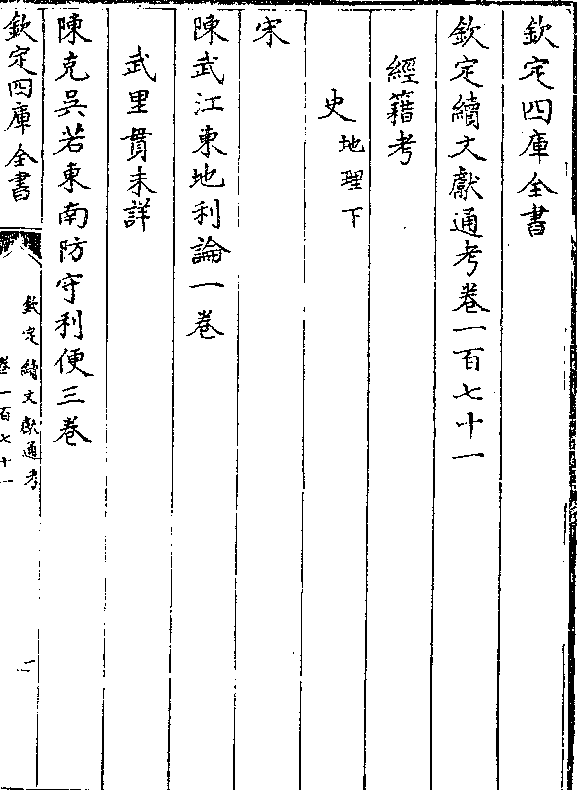 欽定四庫全書
欽定續文獻通考卷一百七十一
經籍考
史地理下
宋
陳武江東地利論一卷
武里貫未詳
陳克吳若東南防守利便三卷
欽定四庫全書
欽定續文獻通考
卷一百七十一
一